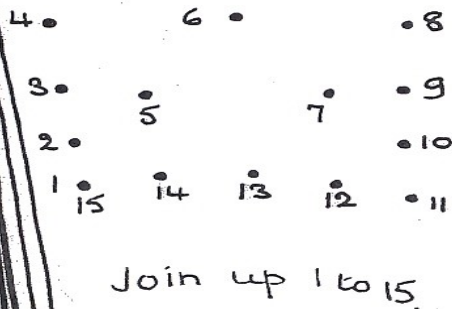 4 6 8
3 5 7 9
2 10
1 15 14 13 12 11
Join up 1 to 15